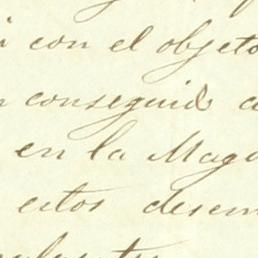 i con el objeto
n conseguido a
en la Mag
estos desem